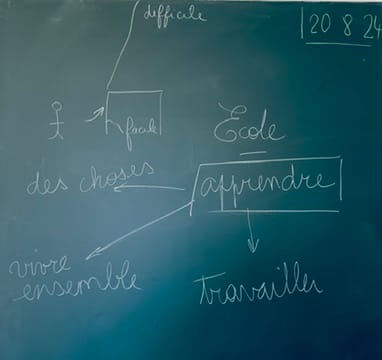 difficile
20 8 24
facile
École
des choses
apprendre
vivre
ensemble
travailler